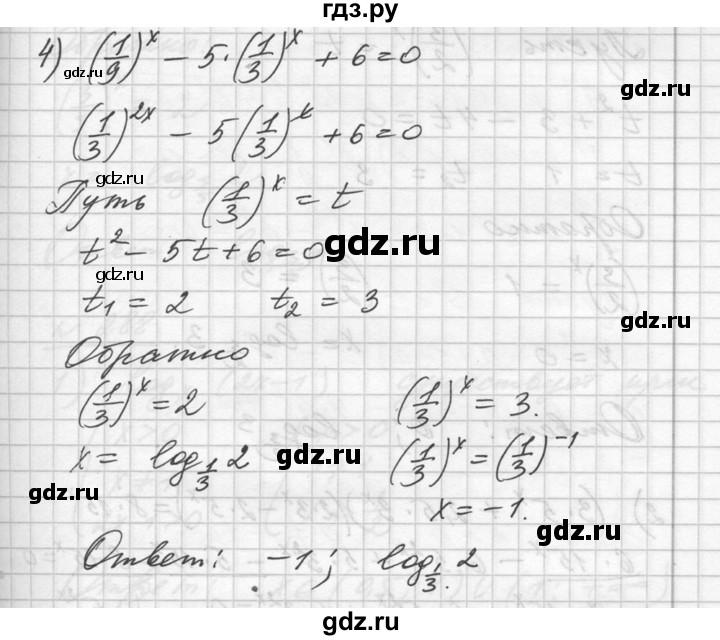 гдз.ру
4) (1/9)^x − 5·(1/3)^x + 6 = 0
gdz.ru
gdz.ru
(1/3)^2x − 5(1/3)^x + 6 = 0
gdz.ru
Путь (1/3)^x = t
gdz.ru
t² − 5t + 6 = 0
t₁ = 2 t₂ = 3
gdz.ru
Обратно
(1/3)^x = 2 (1/3)^x = 3.
x = log_1/3 2 (1/3)^x = (1/3)^−1
gdz.ru
gdz.ru
x = −1.
gdz.ru
Ответ: −1; log_1/3 2
gdz.ru